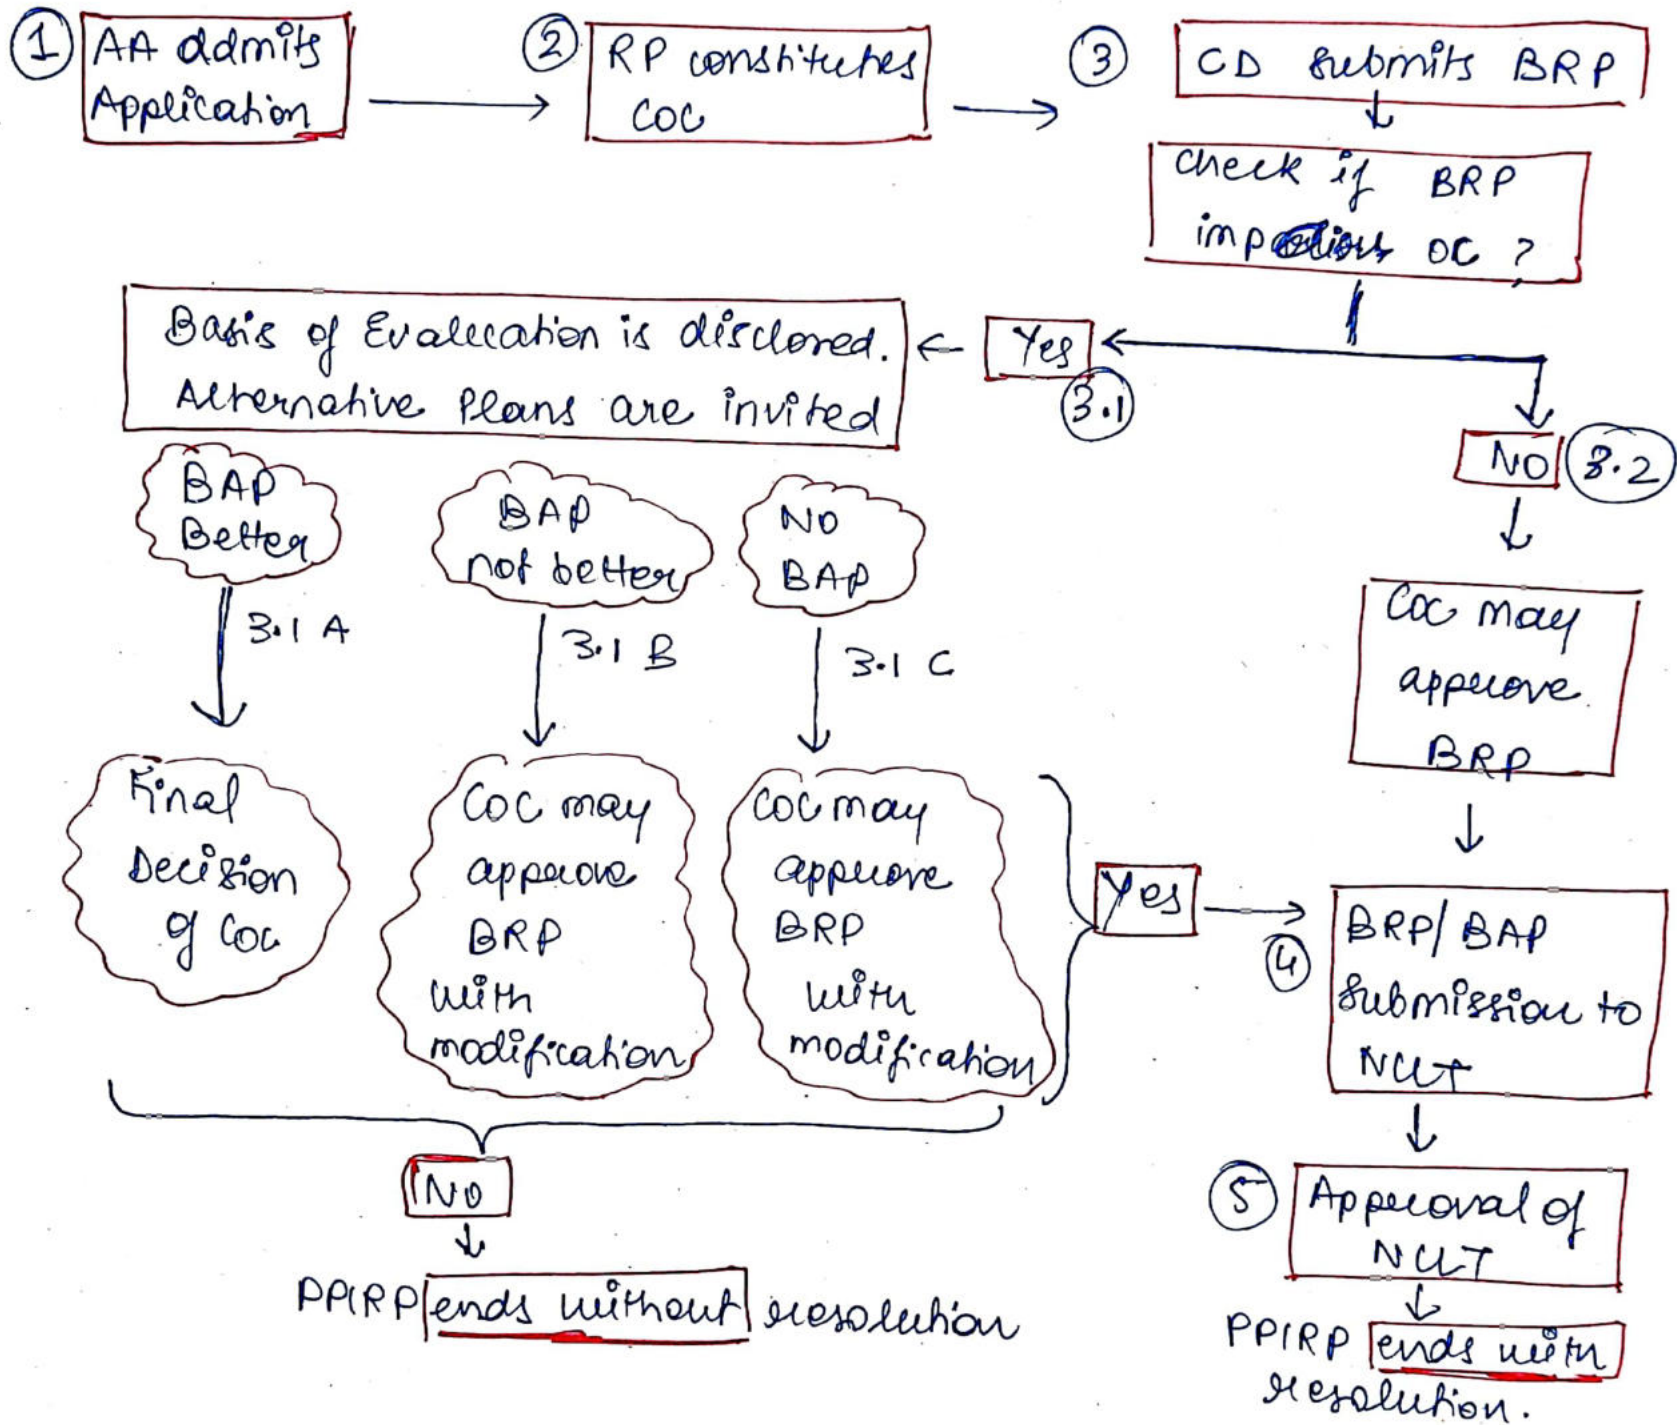 1 AA admits
Application
2 RP constitutes
COC
3 CD submits BRP
Check if BRP
OC ?
Yes
3.1
Basis of Evaluation is disclosed.
Alternative Plans are invited
NO 3.2
BAP
Better
BAP
not better
NO
BAP
3.1 A
3.1 B
3.1 C
COC may
approve
BRP
Final
Decision
of COC
COC may
approve
BRP
with
modification
COC may
approve
BRP
with
modification
Yes
4
BRP/BAP
submission to
NCLT
No
PPIRP ends without resolution
5 Approval of
NCLT
PPIRP ends with
resolution.